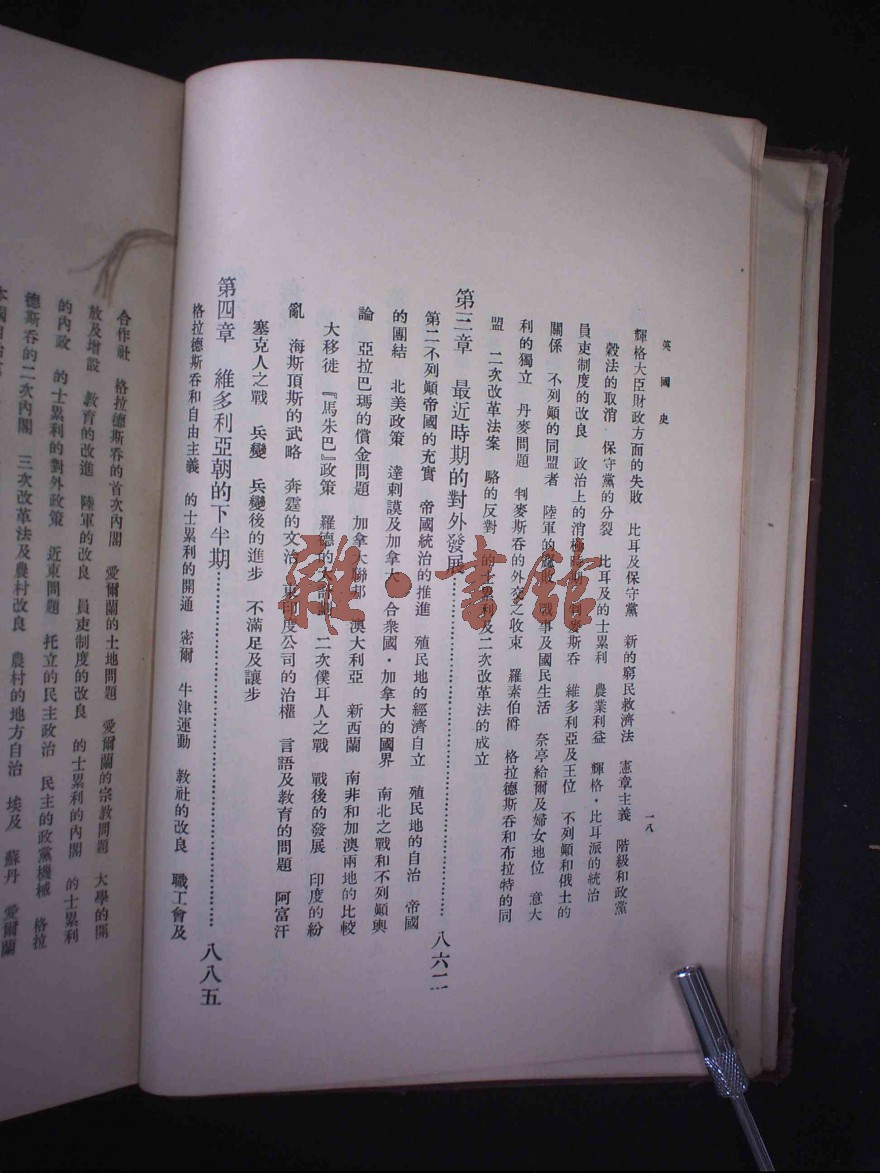 英國史
一八
輝格大臣財政方面的失敗　比耳及保守黨　新的窮民救濟法　憲章主義　階級和政黨
穀法的取消　保守黨的分裂　比耳及的士累利　農業利益　輝格・比耳派的統治
員吏制度的改良　政治上的消極時期　判麥斯吞　維多利亞及王位　不列顛和俄土的
關係　不列顛的同盟者　陸軍的　戰事及國民生活　奈亭給爾及婦女地位　意大
利的獨立　丹麥問題　判麥斯吞的外交之收束　羅素伯爵　格拉德斯吞和布拉特的同
盟　二次改革法案　駱的反對　的士累利及二次改革法的成立
第三章　最近時期的對外發展……八六二
第二不列顛帝國的充實　帝國統治的推進　殖民地的經濟自立　殖民地的自治　帝國
的團結　北美政策　達剌謨及加拿大　合衆國・加拿大的國界　南北之戰和不列顛輿
論　亞拉巴瑪的償金問題　加拿大聯邦　澳大利亞　新西蘭　南非和加澳兩地的比較
大移徙　『馬朱巴』政策　羅德的大計劃　二次僕耳人之戰　戰後的發展　印度的紛
亂　海斯頂斯的武略　奔霆的文治　東印度公司的治權　言語及教育的問題　阿富汗
塞克人之戰　兵變　兵變後的進步　不滿足及讓步
第四章　維多利亞朝的下半期……八八五
格拉德斯吞和自由主義　的士累利的開通　密爾　牛津運動　教社的改良　職工會及
合作社　格拉德斯吞的首次內閣　愛爾蘭的土地問題　愛爾蘭的宗教問題　大學的開
放及增設　教育的改進　陸軍的改良　員吏制度的改良　的士累利的內閣　的士累利
的內政　的士累利的對外政策　近東問題　托立的民主政治　民主的政黨機械　格拉
德斯吞的二次內閣　三次改革法及農村改良　農村的地方自治　埃及　蘇丹　愛爾蘭
雜・書館